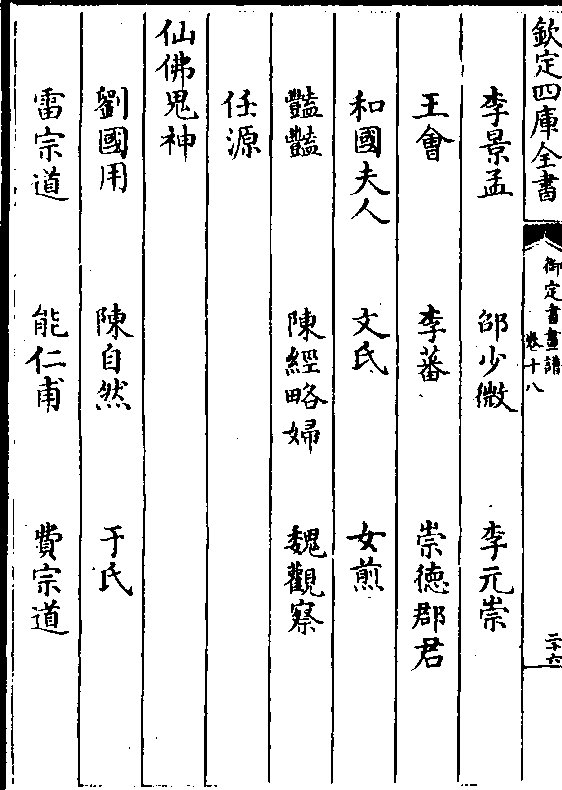 欽定四庫全書
御定書畫譜
卷十八
二十六
李景孟 邵少微 李元崇
王會 李蕃 崇徳郡君
和國夫人 文氏 女煎
豔豔 陳經略婦 魏觀察
任源
仙佛鬼神
劉國用 陳自然 于氏
雷宗道 能仁甫 費宗道